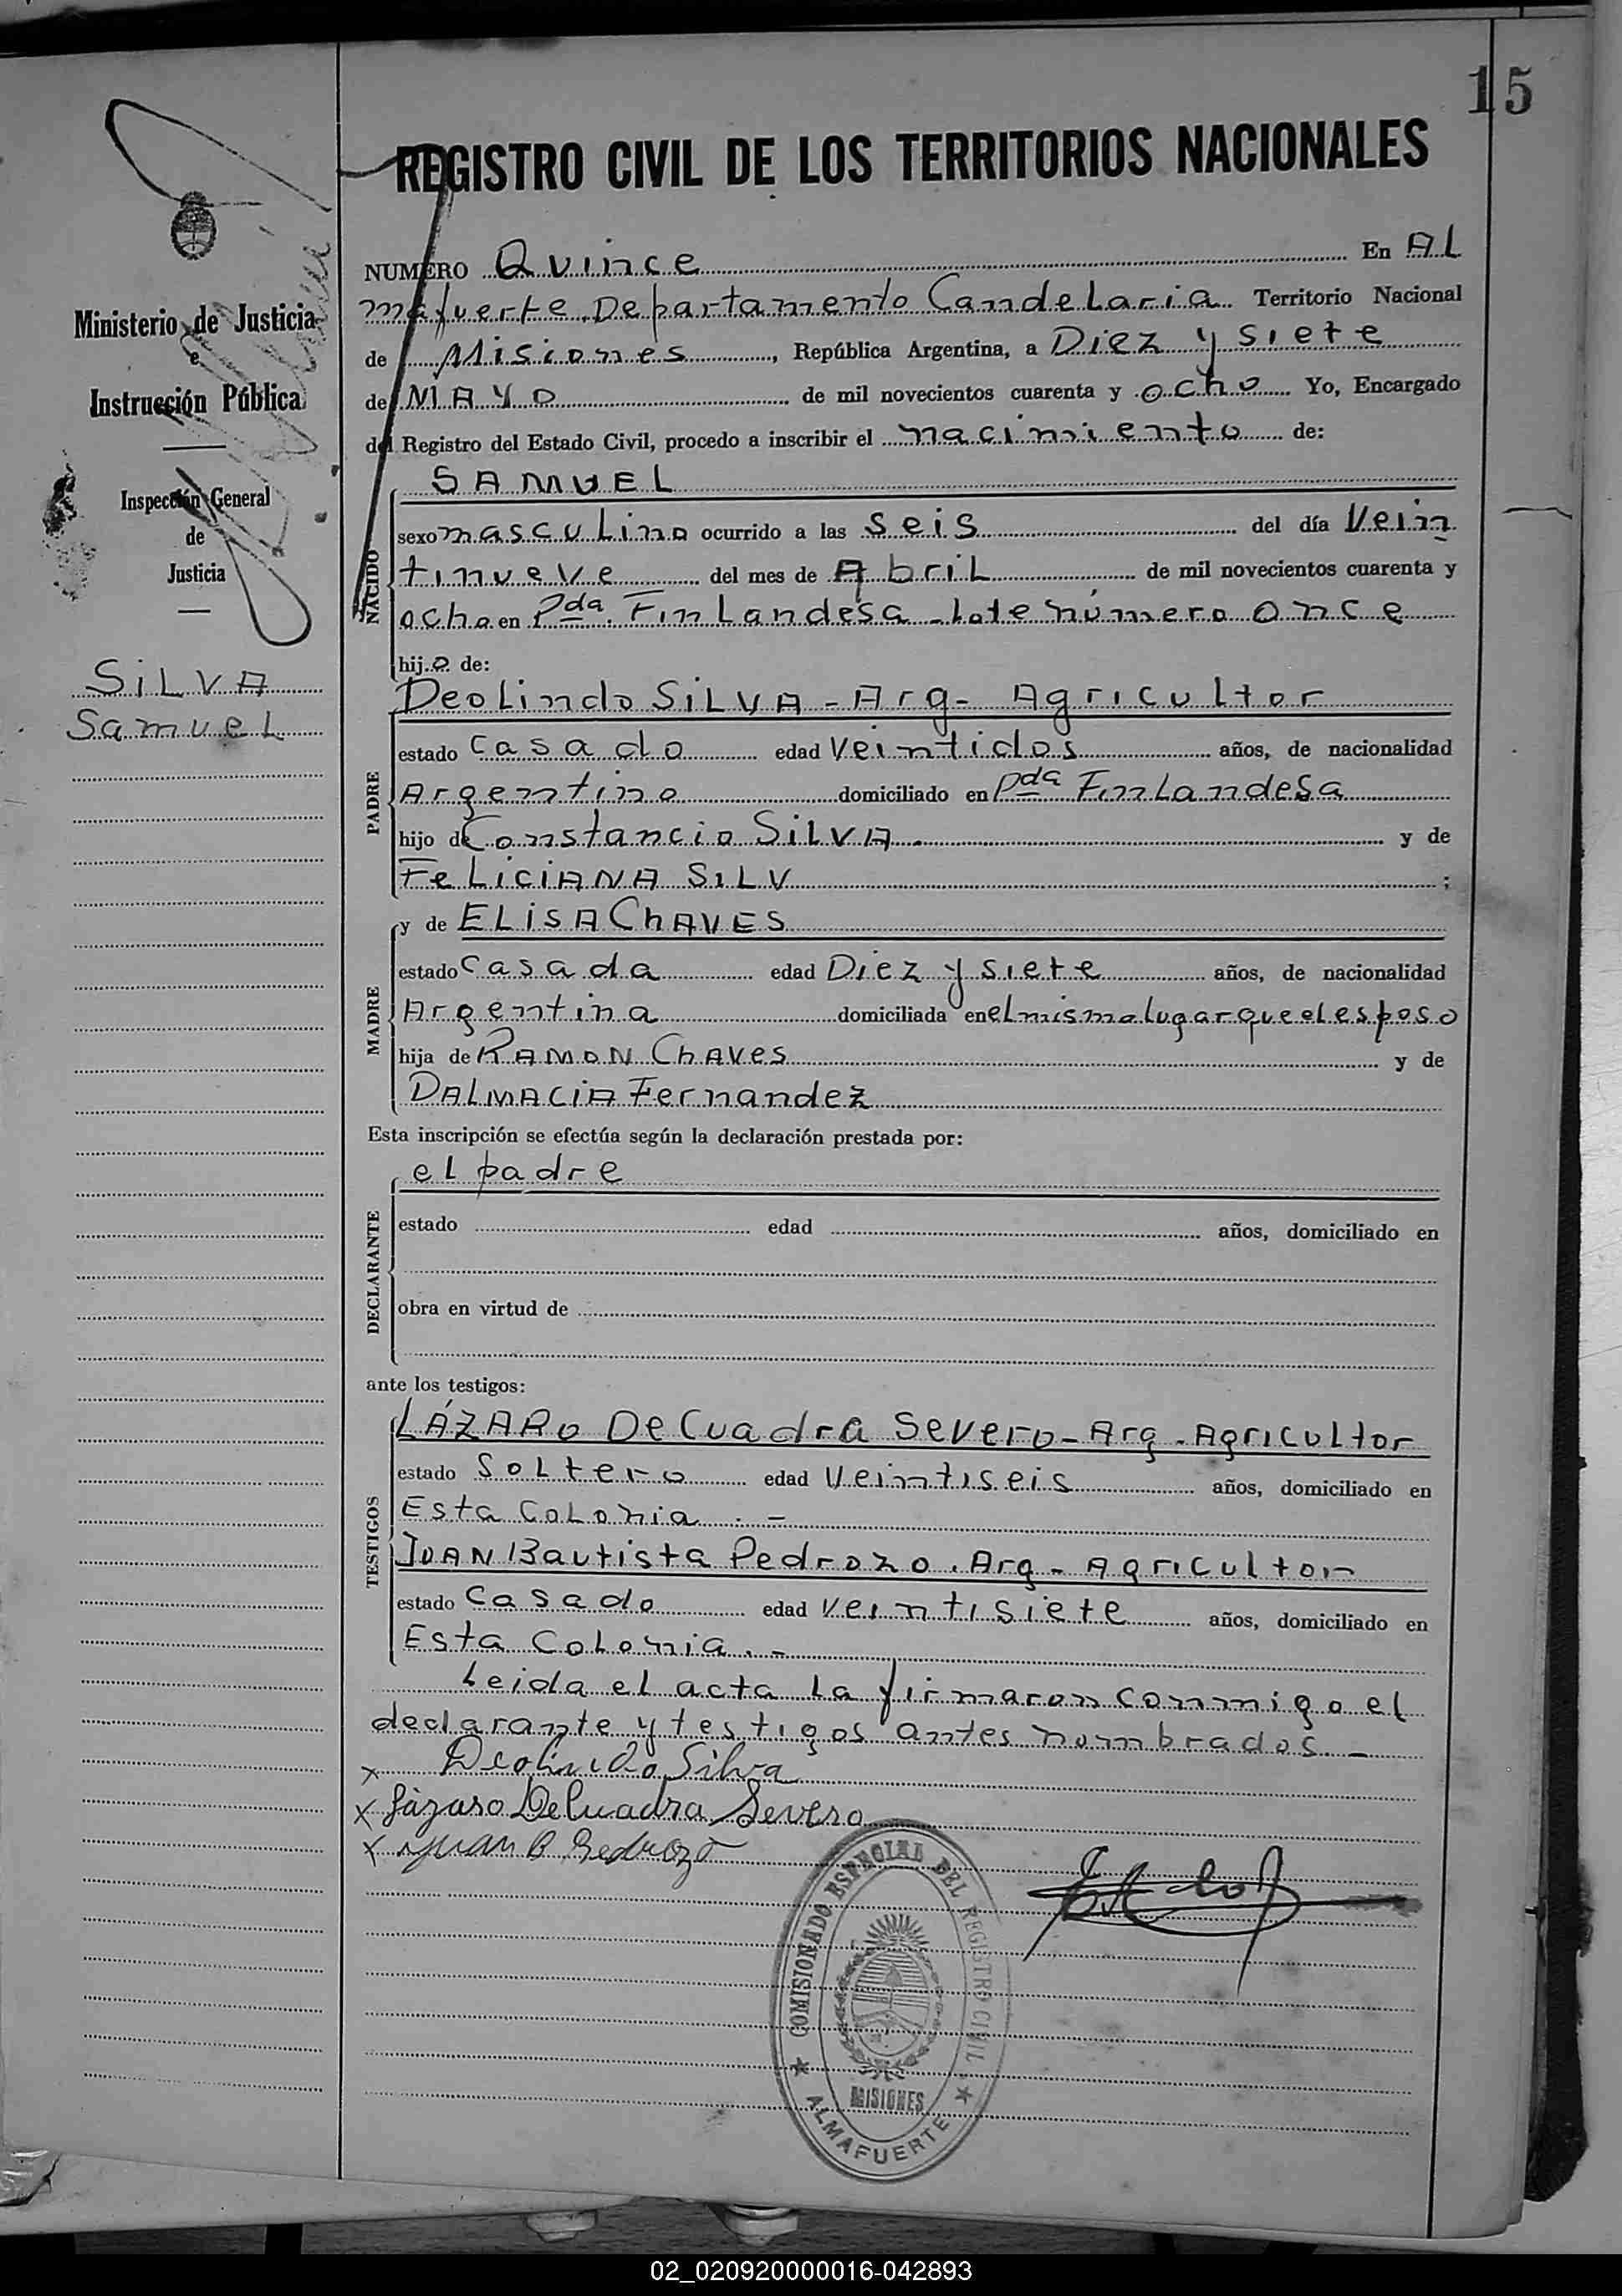 15
REGISTRO CIVIL DE LOS TERRITORIOS NACIONALES
Ministerio de Justicia
e
Instrucción Pública
Inspección General
de
Justicia
SiLVA
SamueL
NUMERO Quince En AL
mafuerte Departamento CandeLaria Territorio Nacional
de Misiones, República Argentina, a Diez y siete
de MAYO de mil novecientos cuarenta y ocho Yo, Encargado
del Registro del Estado Civil, procedo a inscribir el nacimiento de:
NACIDO
SAMUEL
sexo mascuLino ocurrido a las seis del día Vein
tinueve del mes de AbriL de mil novecientos cuarenta y
ocho en Pda. FinLandesa - Lote número once
hijo de:
PADRE
DeoLindo SiLVA - Arg - Agricultor
estado casado edad veintidos años, de nacionalidad
Argentino domiciliado en Pda FinLandesa
hijo de Constancio SiLVA. y de
FeLiCiANA SiLV ;
MADRE
y de ELiSA ChAVES
estado casada edad Diez y siete años, de nacionalidad
Argentina domiciliada en el mismo lugar que el esposo
hija de RAMON ChAVes y de
DALMACiA Fernandez
Esta inscripción se efectúa según la declaración prestada por:
DECLARANTE
eL padre
estado edad años, domiciliado en
obra en virtud de
ante los testigos:
TESTIGOS
LÁZARO DeCuadra Severo - Arg - AgricuLtor
estado SoLtero edad Veintiseis años, domiciliado en
Esta CoLonia . -
JUAN Bautista Pedrozo . Arg - Agricultor
estado casado edad veintisiete años, domiciliado en
Esta CoLonia . -
Leida el acta La firmaron conmigo el
declarante y testigos antes nombrados. -
x Deolindo Silva
x Lázaro DeCuadra Severo
x Juan B Pedrozo
COMISIONADO ESPECIAL DEL REGISTRO CIVIL
MISIONES
ALMAFUERTE
02_020920000016-042893